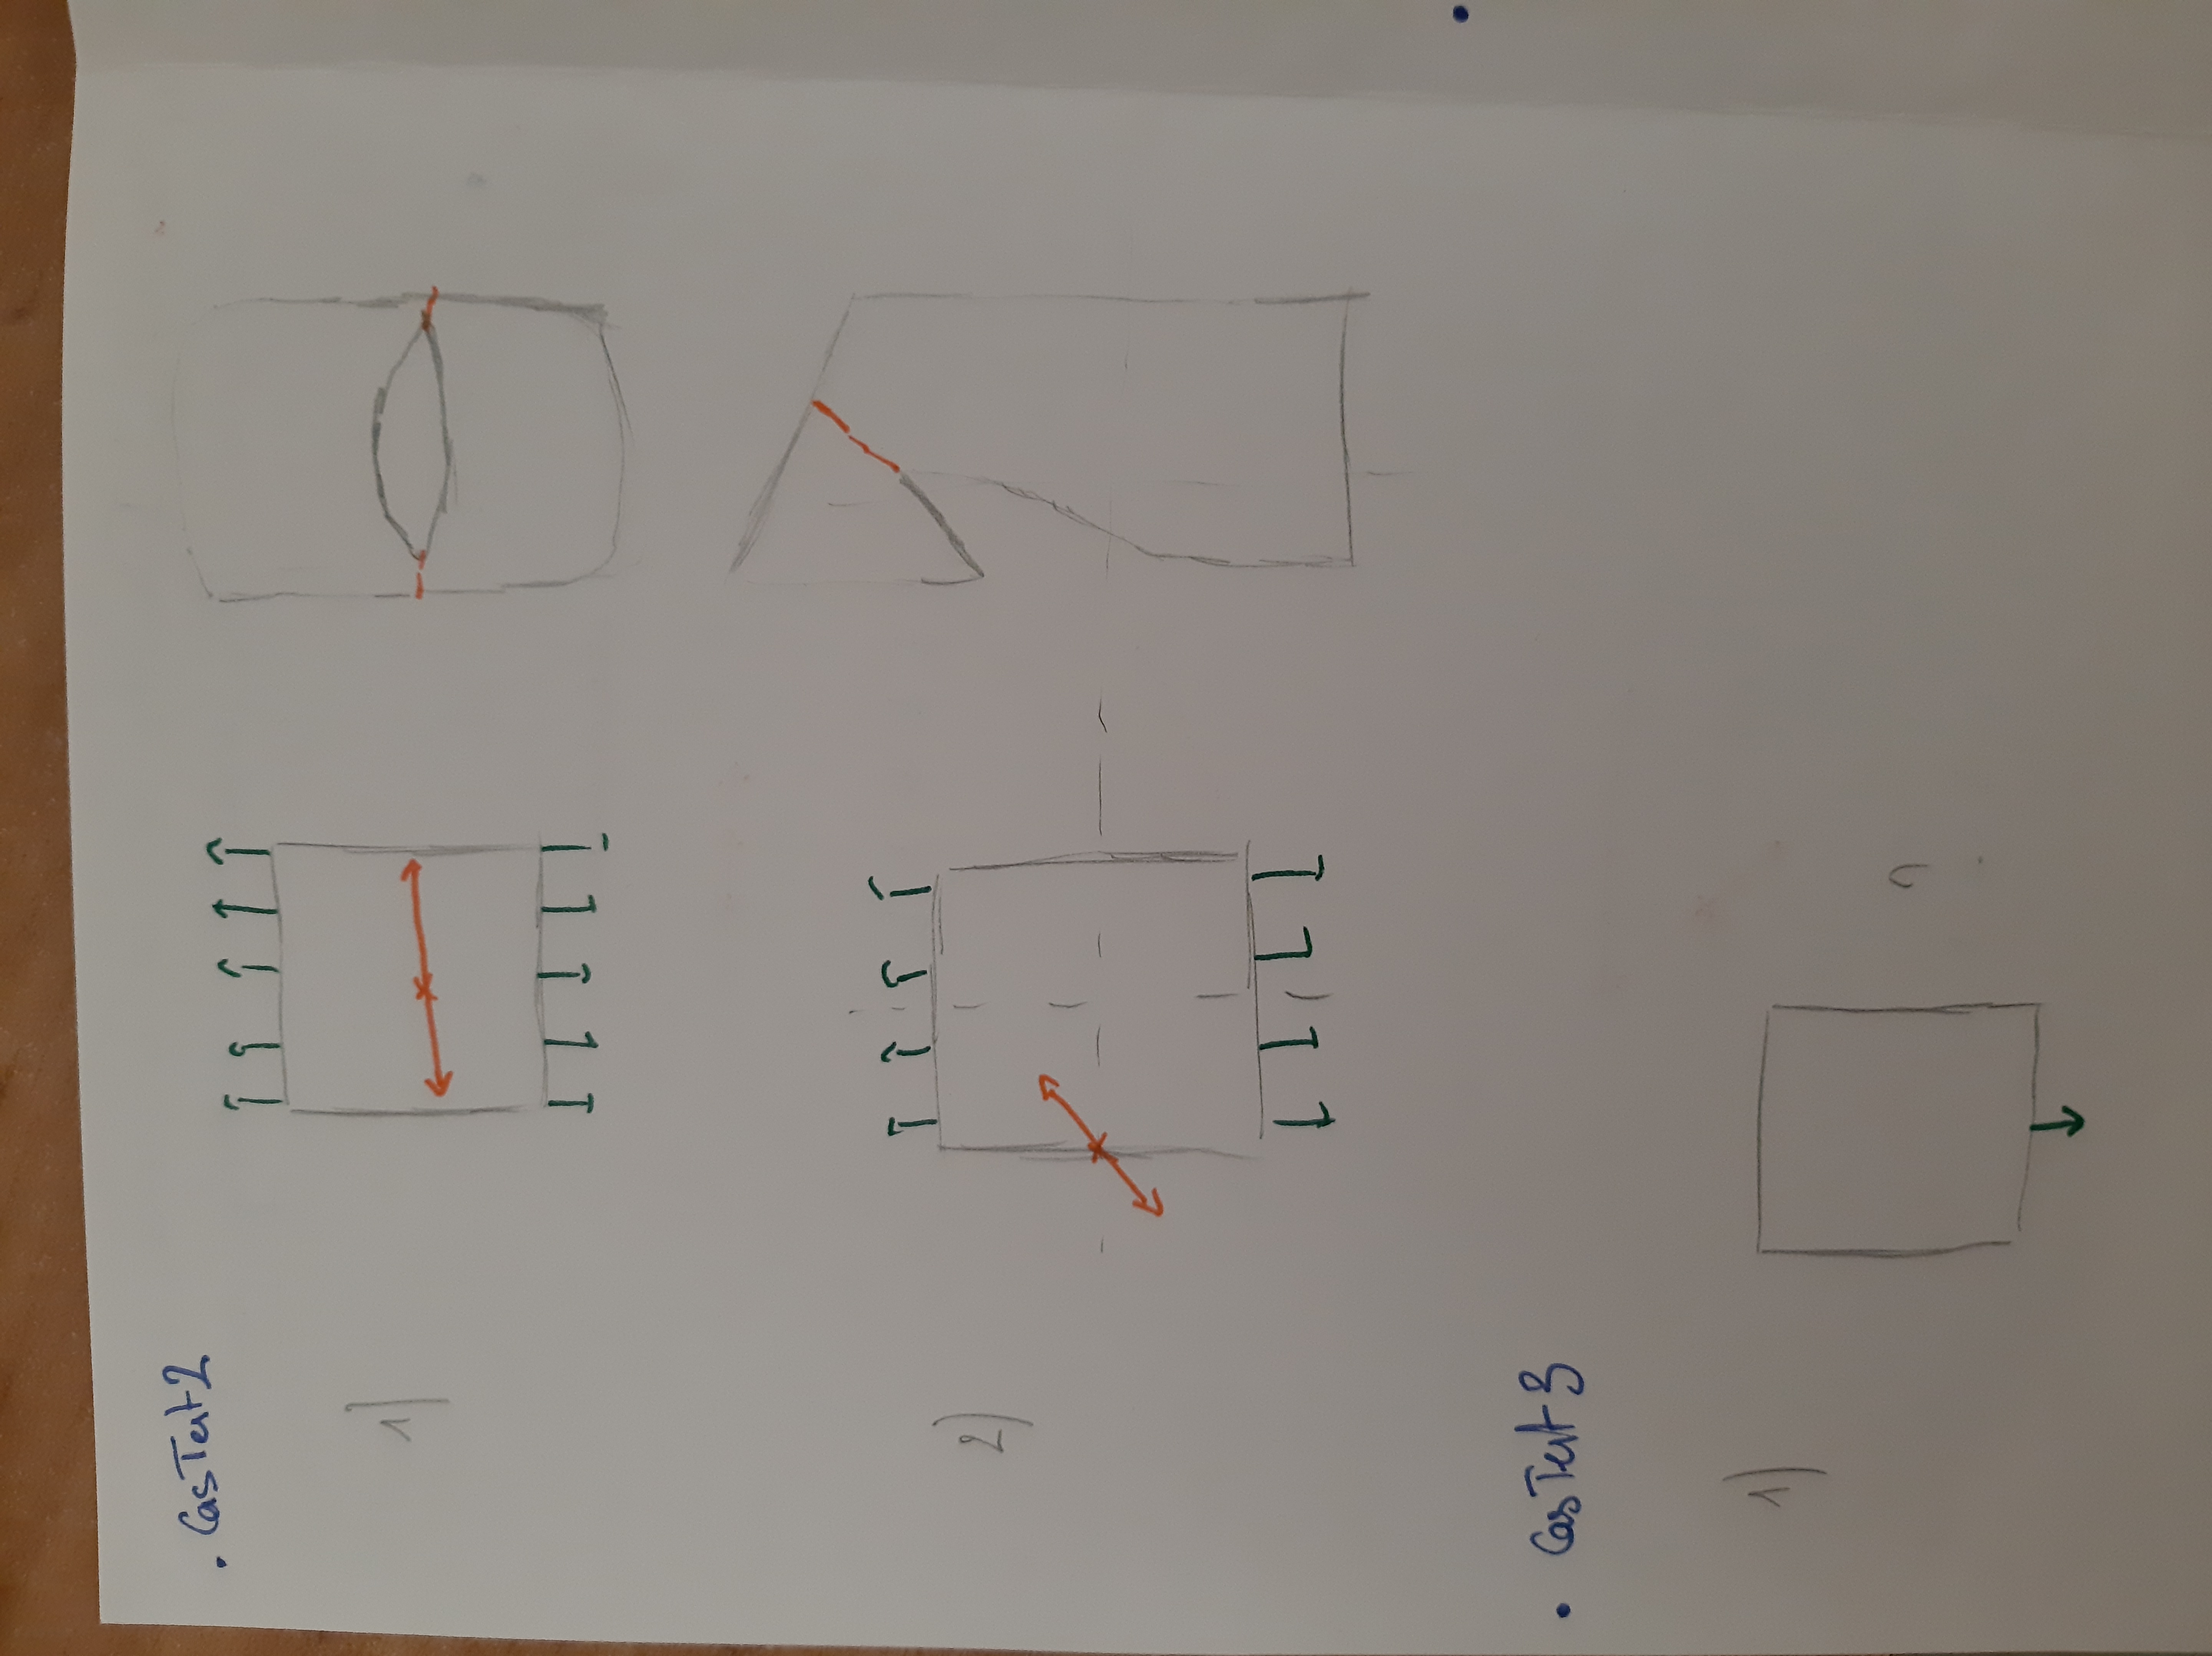 . CasTest2
1)
2)
. CasTest3
1)
?